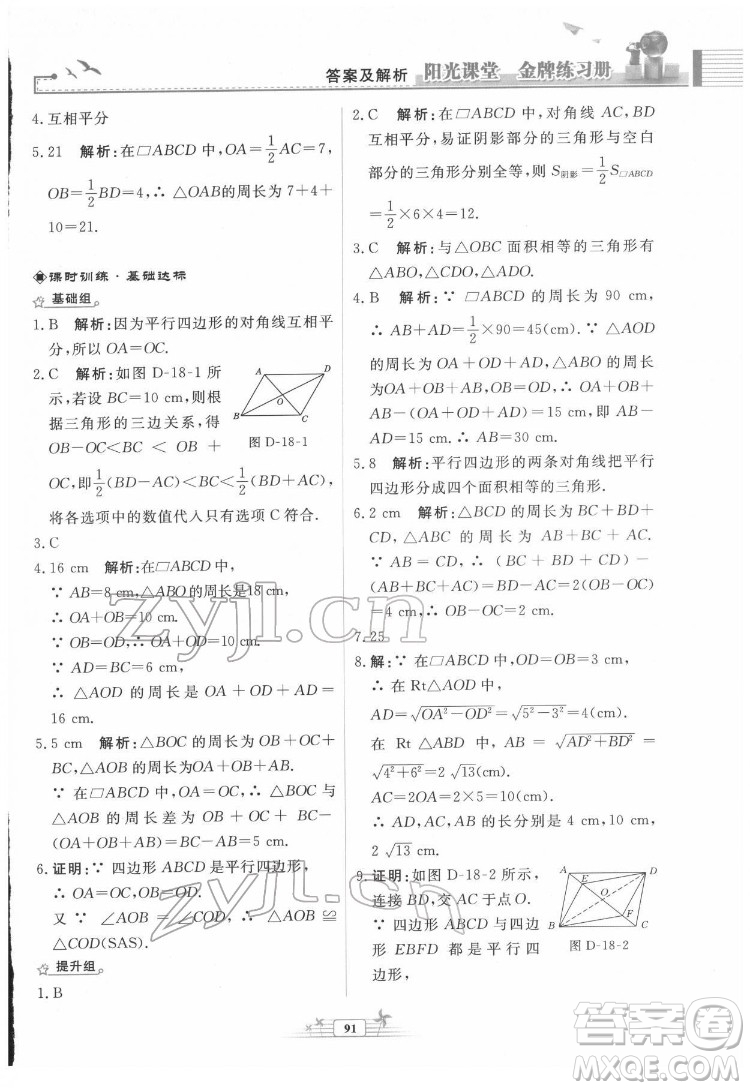 答案及解析 阳光课堂 金牌练习册
4.互相平分
5.21 解析:在□ABCD中,OA=1/2AC=7,
OB=1/2BD=4,∴△OAB的周长为7+4+
10=21.
课时训练·基础达标
基础组
1.B 解析:因为平行四边形的对角线互相平
分,所以OA=OC.
2.C 解析:如图D-18-1所
示,若设BC=10 cm,则根
据三角形的三边关系,得
OB-OC<BC<OB+
OC,即1/2(BD-AC)<BC<1/2(BD+AC),
将各选项中的数值代入只有选项C符合.
A
D
O
B
C
图D-18-1
3.C
4.16 cm 解析:在□ABCD中,
∵AB=8 cm,△ABO的周长是18 cm,
∴OA+OB=10 cm.
∵OB=OD,∴OA+OD=10 cm.
∵AD=BC=6 cm,
∴△AOD的周长是OA+OD+AD=
16 cm.
5.5 cm 解析:△BOC的周长是OB+OC+
BC,△AOB的周长是OA+OB+AB.
∵在□ABCD中,OA=OC,∴△BOC与
△AOB的周长差为OB+OC+BC-
(OA+OB+AB)=BC-AB=5 cm.
6.证明:∵四边形ABCD是平行四边形,
∴OA=OC,OB=OD.
又∵∠AOB=∠COD,∴△AOB≌
△COD(SAS).
提升组
1.B
2.C 解析:在□ABCD中,对角线AC,BD
互相平分,易证阴影部分的三角形与空白
部分的三角形分别全等,则S阴影=1/2S□ABCD
=1/2×6×4=12.
3.C 解析:与△OBC面积相等的三角形有
△ABO、△CDO、△ADO.
4.B 解析:∵□ABCD的周长为90 cm,
∴AB+AD=1/2×90=45(cm).∵△AOD
的周长为OA+OD+AD,△ABO的周长
为OA+OB+AB,OB=OD,∴OA+OB+
AB-(OA+OD+AD)=15 cm,∴AB-
AD=15 cm.∴AB=30 cm.
5.8 解析:平行四边形的两条对角线把平行
四边形分成四个面积相等的三角形.
6.2 cm 解析:△BCD的周长为BC+CD+
BD,△ABC的周长为AB+BC+AC.
∵AB=CD,∴(BC+CD+BD)-
(AB+BC+AC)=BD-AC=2OB-2OC
=4 cm,∴OB-OC=2 cm.
7.25
8.解:∵在□ABCD中,OD=OB=3 cm,
∴在Rt△AOD中,
AD=√(OA²-OD²)=√(5²-3²)=4(cm).
在Rt△ABD中,AB=√(AD²+BD²)=
√(4²+6²)=2√13(cm).
AC=2OA=2×5=10(cm).
∴AC和AB的长分别是10 cm和
2√13 cm.
9.证明:如图D-18-2所示,
连接BD,交AC于点O.
∵四边形ABCD与四边
形EBFD都是平行四
边形,
A
D
E
O
F
B
C
图D-18-2
91
zyjl.cn
zyjl.cn
答案圈
MXQE.COM